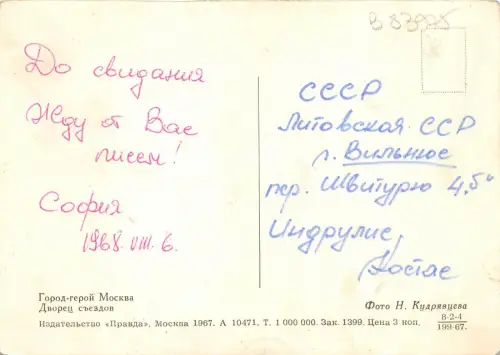 В 83975
До свидания
Жду от Вас
писем!
София
1968. VIII. 6.
СССР
Литовская ССР
г. Вильнюс
пер. Швитурю 4, 5
Индрулис,
Костас
Город-герой Москва
Дворец съездов
Фото Н. Кудрявцева
Издательство «Правда», Москва 1967. А 10471. Т. 1 000 000. Зак. 1399. Цена 3 коп.
8-2-4
199-67.